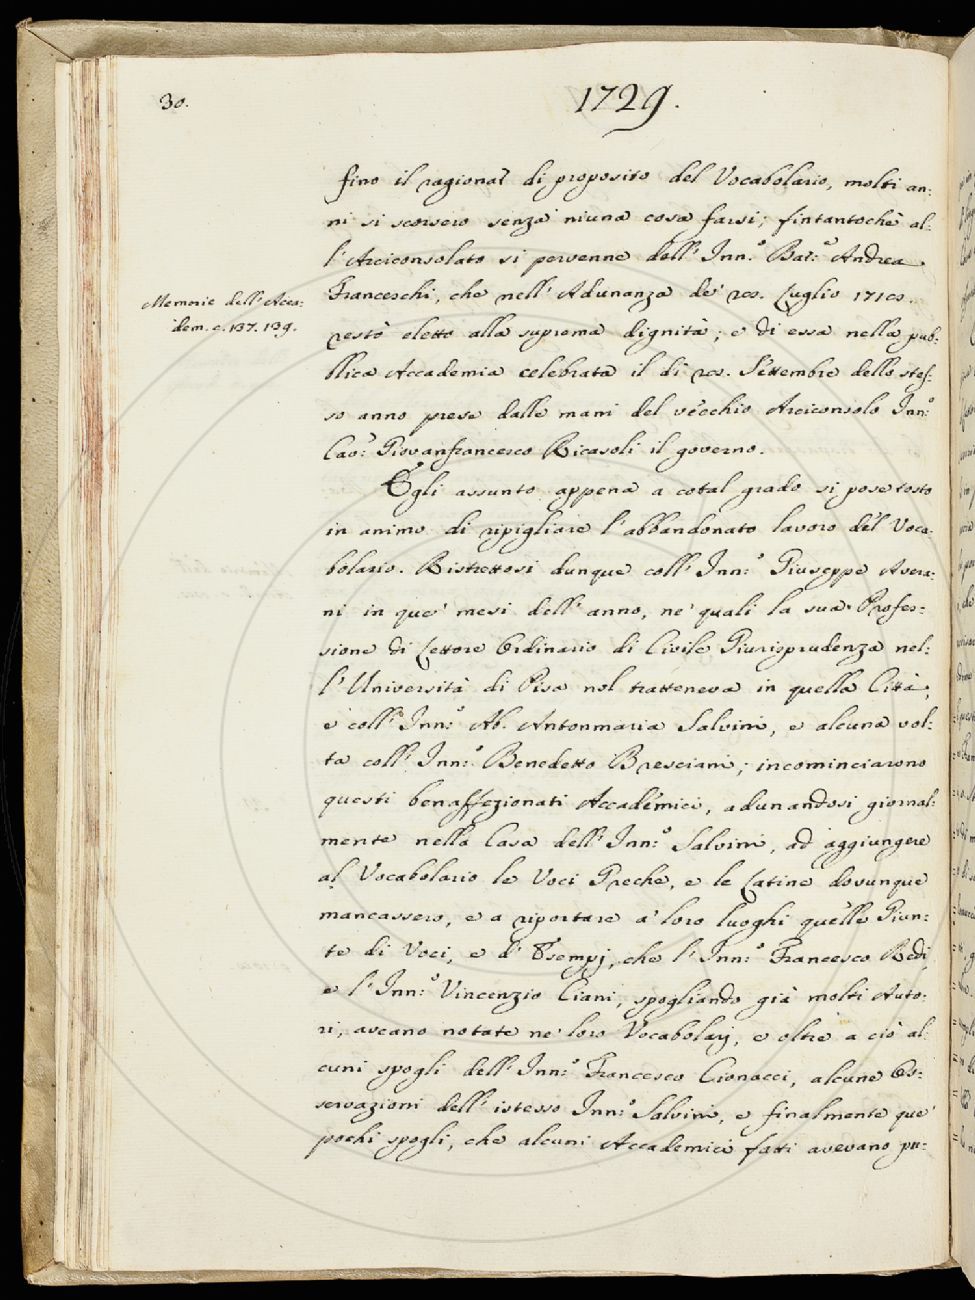 30.
1729.
fino il ragionar̃ di proposito del Vocabolario, molti an:
ni si scorsero senza niuna cosa farsi; fintantochè al:
l'Arciconsolato si pervenne dell'Inn.º Bar:º Andrea
Franceschi, che nell'Adunanza de' Luglio
restò eletto alla suprema dignità; e di essa nella pub:
blica Accademia celebrata il dì Settembre dello stes:
so anno prese dalle mani del vecchio Arciconsolo Inn:º
Cav:º Giovanfrancesco Ricasoli il governo.
Memorie dell'Acca:
dem. c. 137. 139.
Egli assunto appena a cotal grado si pose tosto
in animo di ripigliare l'abbandonato lavoro del Voca:
bolario. Ristrettosi dunque coll'Inn:º Giuseppe Avera:
ni in que' mesi dell'anno, ne' quali la sua Profes:
sione di Lettore Ordinario di Civile Giurisprudenza nel:
l'Università di Pisa nol tratteneva in quella Città,
e coll'Inn:º Ab. Antonmaria Salvini, e alcuna vol:
ta coll'Inn:º Benedetto Bresciani; incominciarono
questi benaffezionati Accademici, adunandosi giornal:
mente nella Casa dell'Inn:º Salvini, ad aggiungere
al Vocabolario le Voci Greche, e le Latine dovunque
mancassero, e a riportare a' loro luoghi quelle Giun:
te di Voci, e d'Esempj, che l'Inn:º Francesco Redi,
e l'Inn:º Vincenzio Ciani, spogliando già molti Auto:
ri, aveano notate ne' loro Vocabolarj, e oltre a ciò al:
cuni spogli dell'Inn:º Francesco Cionacci, alcune Os:
servazioni dell'istesso Inn:º Salvini, e finalmente que'
pochi spogli, che alcuni Accademici fatti avevano pu: